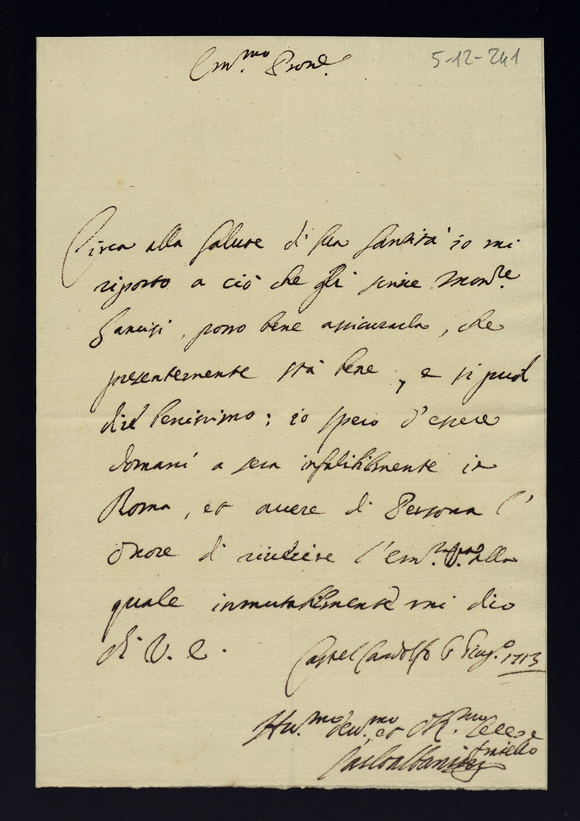 Em.mo Prone.
5-12-241
Circa alla salute di sua Santità io mi
riporto a ciò che gli scrive Monre.
Lancisi, posso bene assicurarla, che
presentemente stà bene, e si può
dir benissimo: io spero d'essere
domani a sera infalibilmente in
Roma, et avere di Persona l'
Onore di riverire l'Em.za V.ra alla
quale inmutabilmente mi dico
di V. E.
Castel Gandolfo 6 Giug.o 1713
Hu.mo dev.mo et Ob.mo
fratello
Carlo Albani